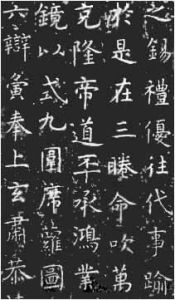 之錫禮優往代事踰
於是在三睠命吹萬
克隆帝道丕承鴻業
鏡以式九圍席蘿圖
六辯寅奉上玄肅恭